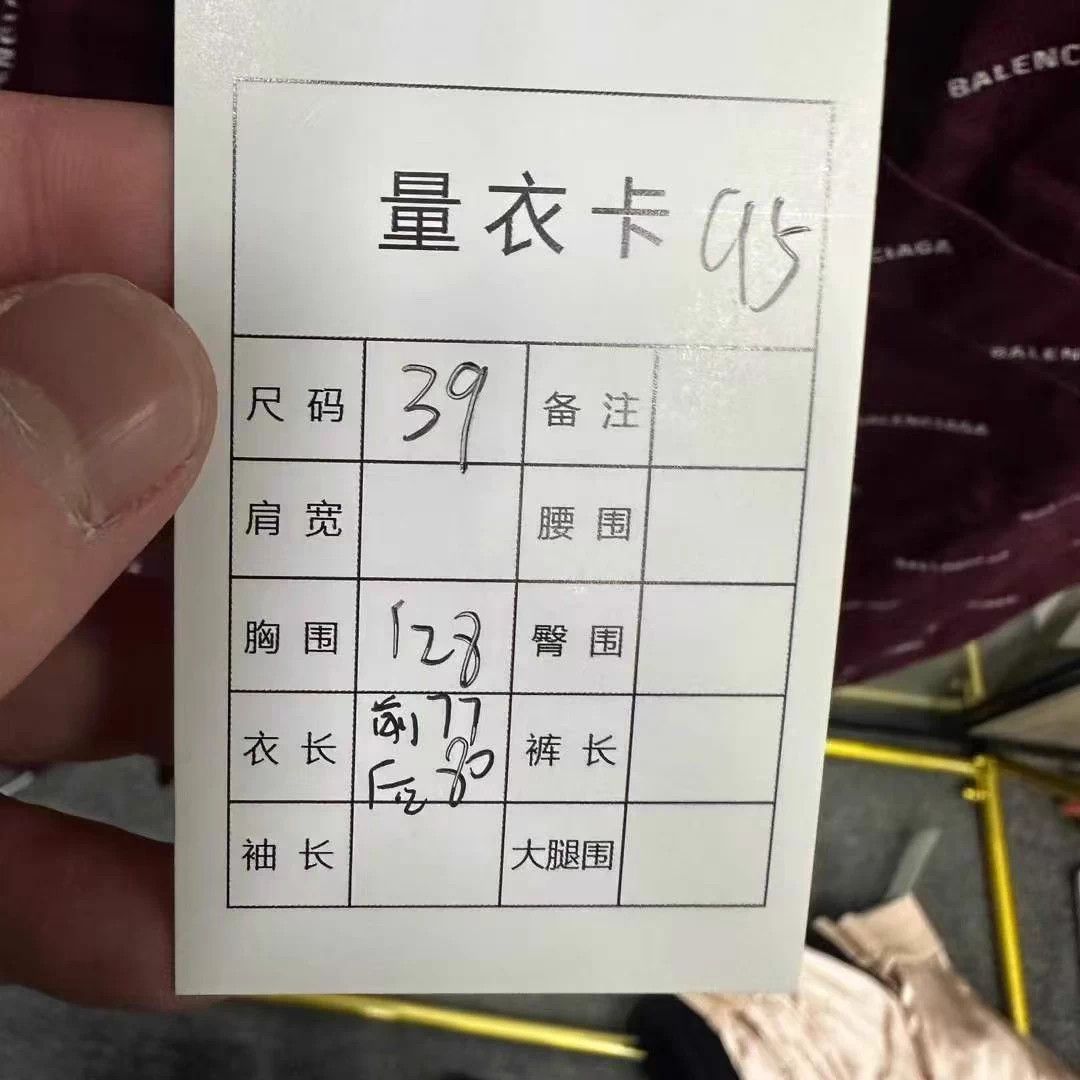 量衣卡 95
尺码 39 备注
肩宽 腰围
胸围 128 臀围
衣长 前77 后80 裤长
袖长 大腿围
BALENC
CIAGA
BALENCIAGA